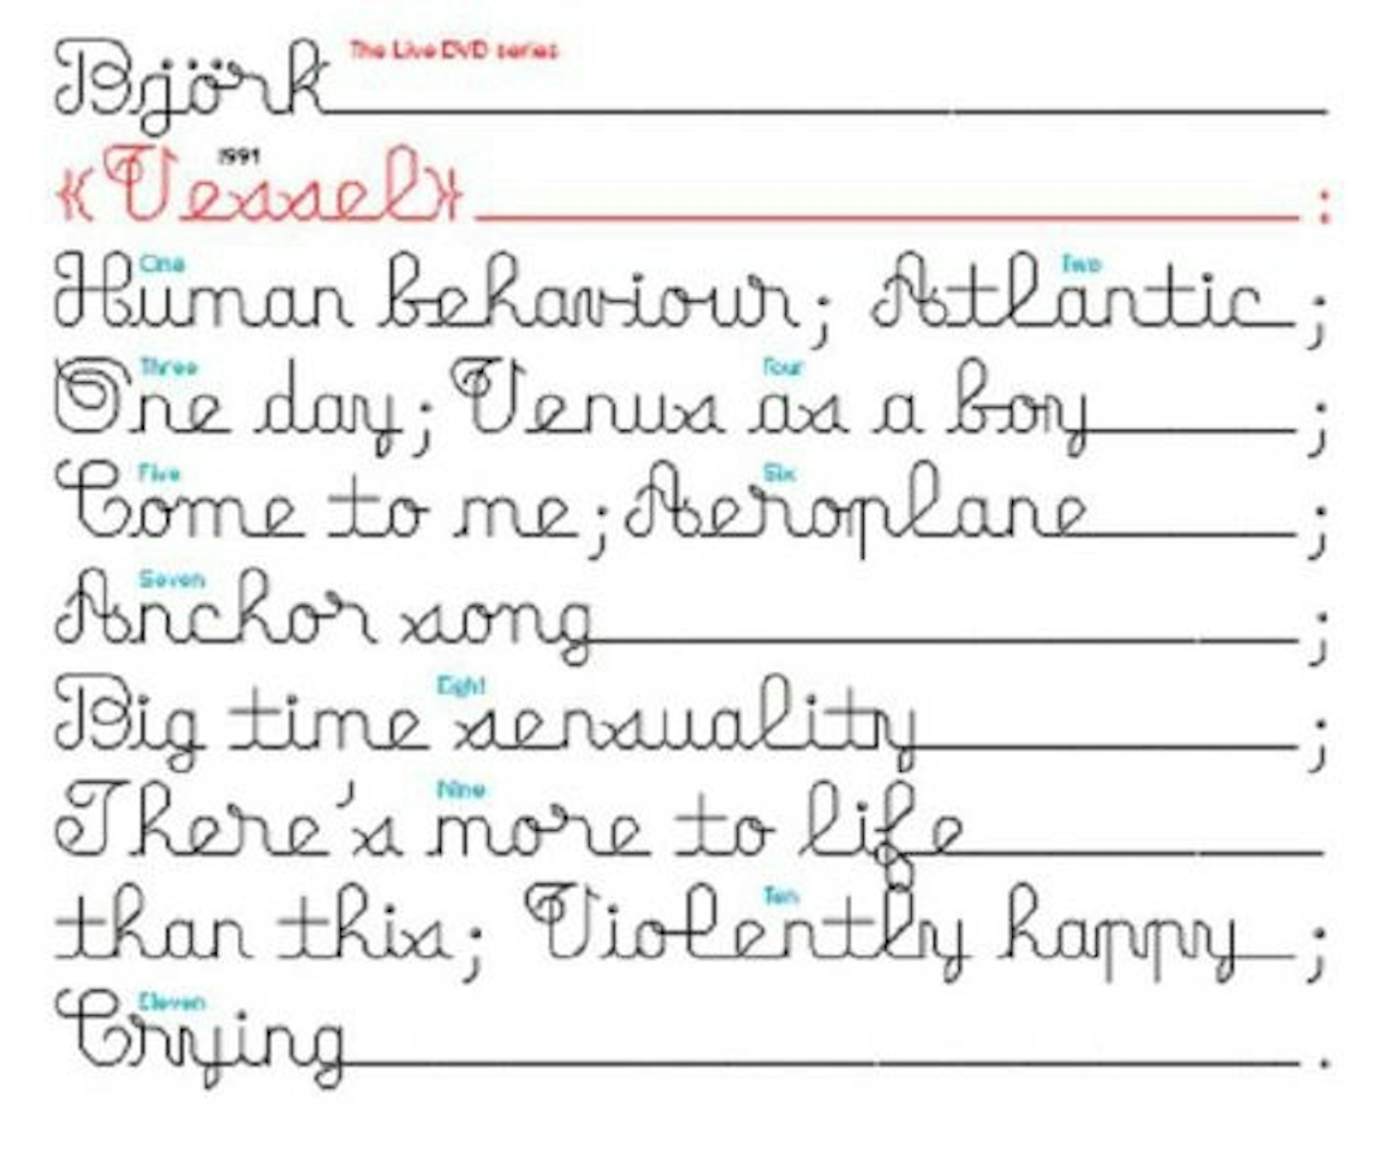 Björk The Live DVD series
{{Vessel}} 1991 :
Human behaviour; One Atlantic Two ;
One day; Three Venus as a boy Four ;
Come to me; Five Aeroplane Six ;
Anchor song Seven ;
Big time sensuality Eight ;
There's more to life Nine
than this; Violently happy Ten ;
Crying Eleven .